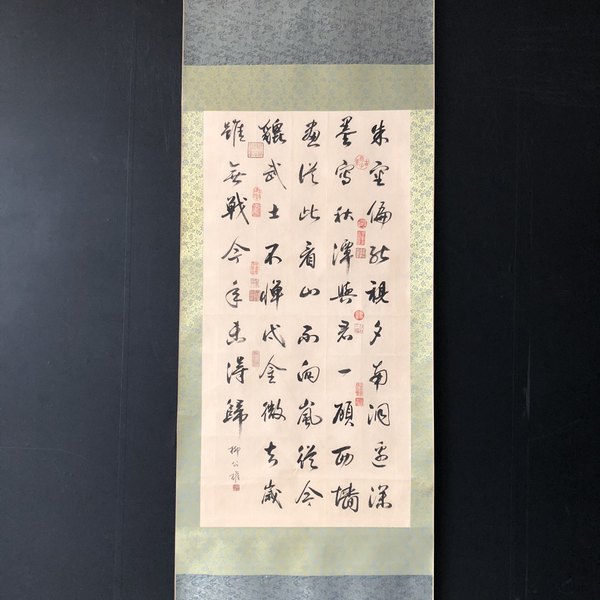 朱審偏能視夕南洞邊深
墨寫秋潭與君一顧西墻
畫從此看山不向嵐從今
貔武士不憚戍金微去歲
雖無戦今年未得歸
柳公權